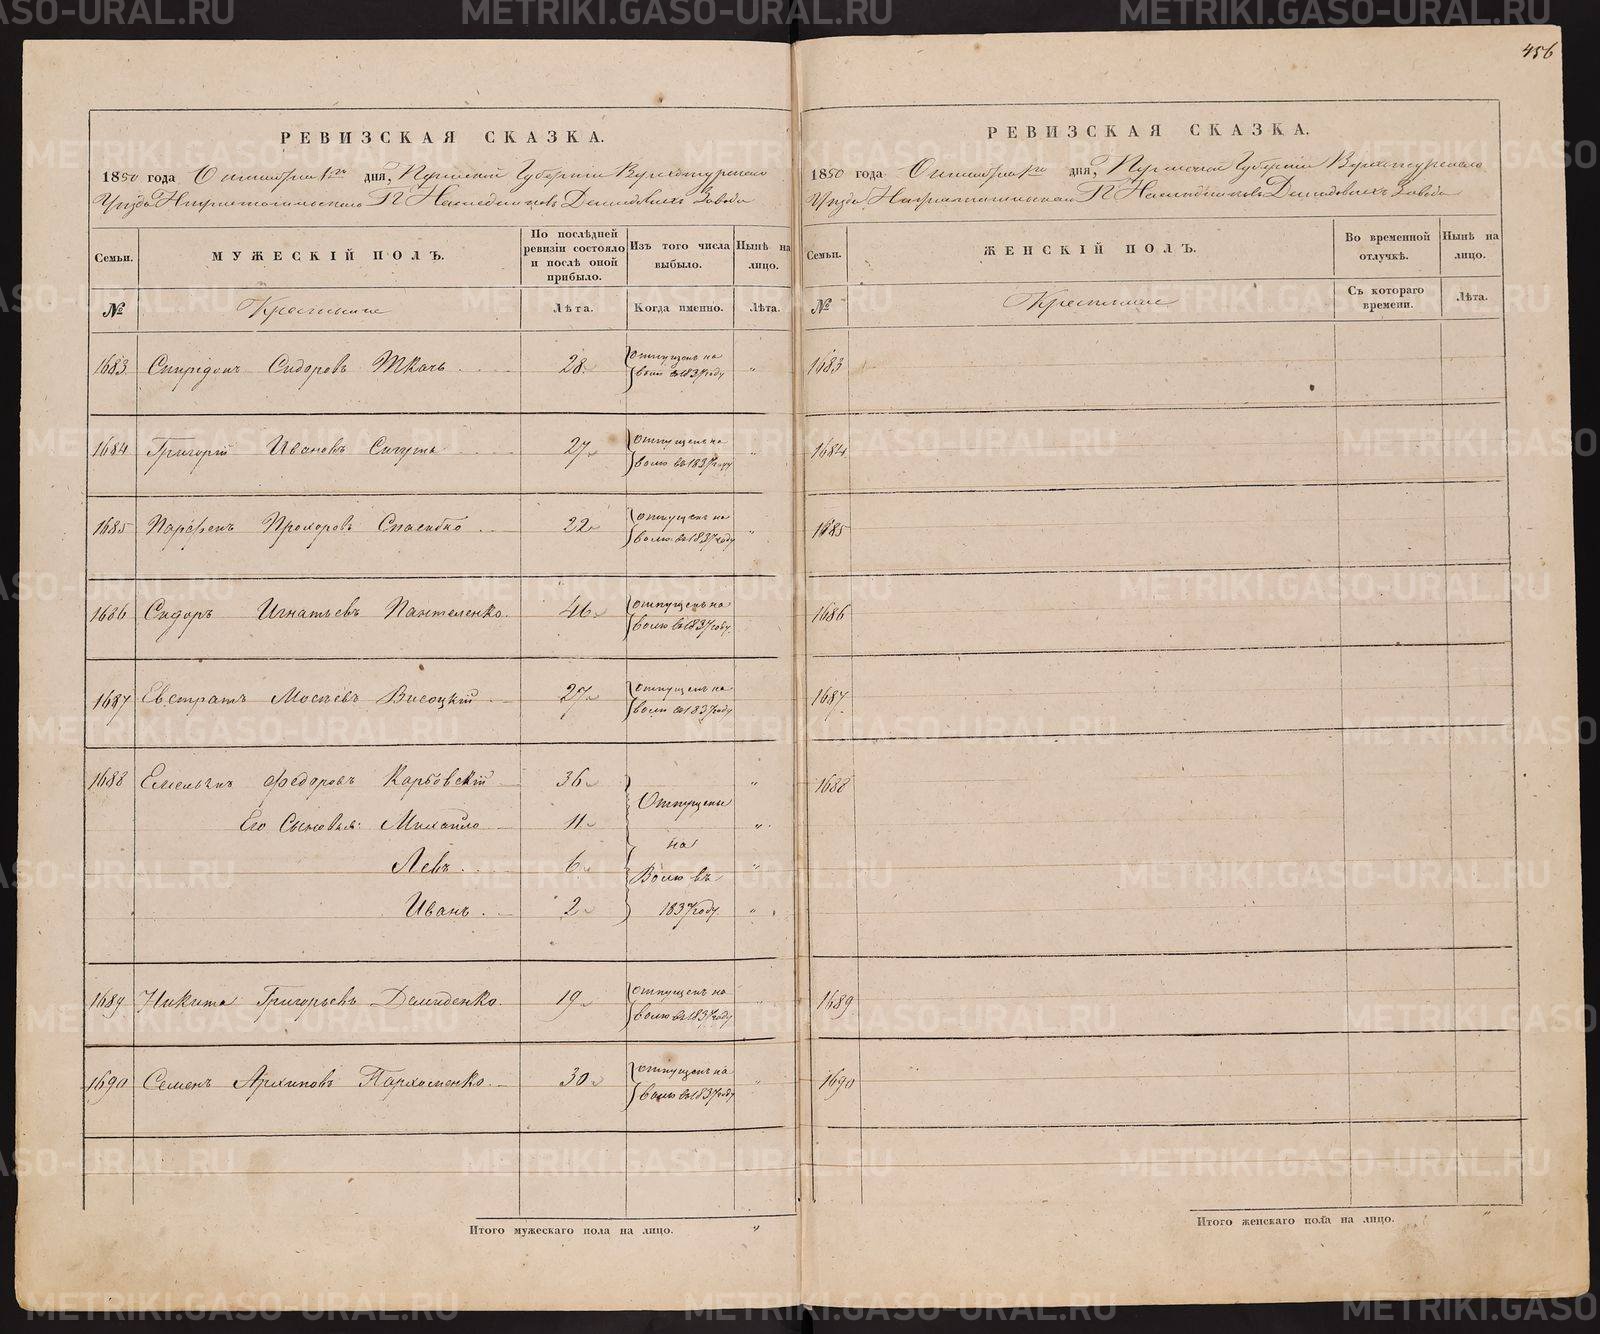 456
РЕВИЗСКАЯ СКАЗКА.
1850 года Октября 1го дня, Пермской Губерніи Верхотурскаго
Уезда Нижнетагильскаго Г.г. Наследниковъ Демидовыхъ Завода
Семьи.
МУЖЕСКІЙ ПОЛЪ.
По послѣдней ревизіи состояло и послѣ оной прибыло.
Изъ того числа выбыло.
Нынѣ на лицо.
№
Крестьяне
Лѣта.
Когда именно.
Лѣта.
1683 Спиридонъ Сидоровъ Ткачъ 28 отпущенъ на волю въ 1837 году "
1684 Григорій Ивановъ 27 отпущенъ на волю въ 1837 году "
1685 Парфенъ Прохоровъ Спасибко 22 отпущенъ на волю въ 1837 году "
1686 Сидоръ Игнатьевъ Пантеленко 46 отпущенъ на волю въ 1837 году
1687 Евстратъ Мосѣевъ Высоцкій 27 отпущенъ на волю въ 1837 году
1688 Емельянъ Федоровъ Карбовскій 36 "
Его Сыновья: Михайло 11 "
Левъ 6 "
Иванъ 2 "
Отпущены
на
Волю въ
1837 году
1689 Никита Григорьевъ Демиденко 19 отпущенъ на волю въ 1837 году "
1690 Семенъ Архиповъ Пархоменко 30 отпущенъ на волю въ 1837 году "
Итого мужескаго пола на лицо. "
РЕВИЗСКАЯ СКАЗКА.
1850 года Октября 1го дня, Пермской Губерніи Верхотурскаго
Уезда Нижнетагильскаго Г.г. Наследниковъ Демидовыхъ Завода
Семьи.
ЖЕНСКІЙ ПОЛЪ.
Во временной отлучкѣ.
Нынѣ на лицо.
№
Крестьяне
Съ котораго времени.
Лѣта.
1683
1684
1685
1686
1687
1688
1689
1690
Итого женскаго пола на лицо. "
METRIKI.GASO-URAL.RU